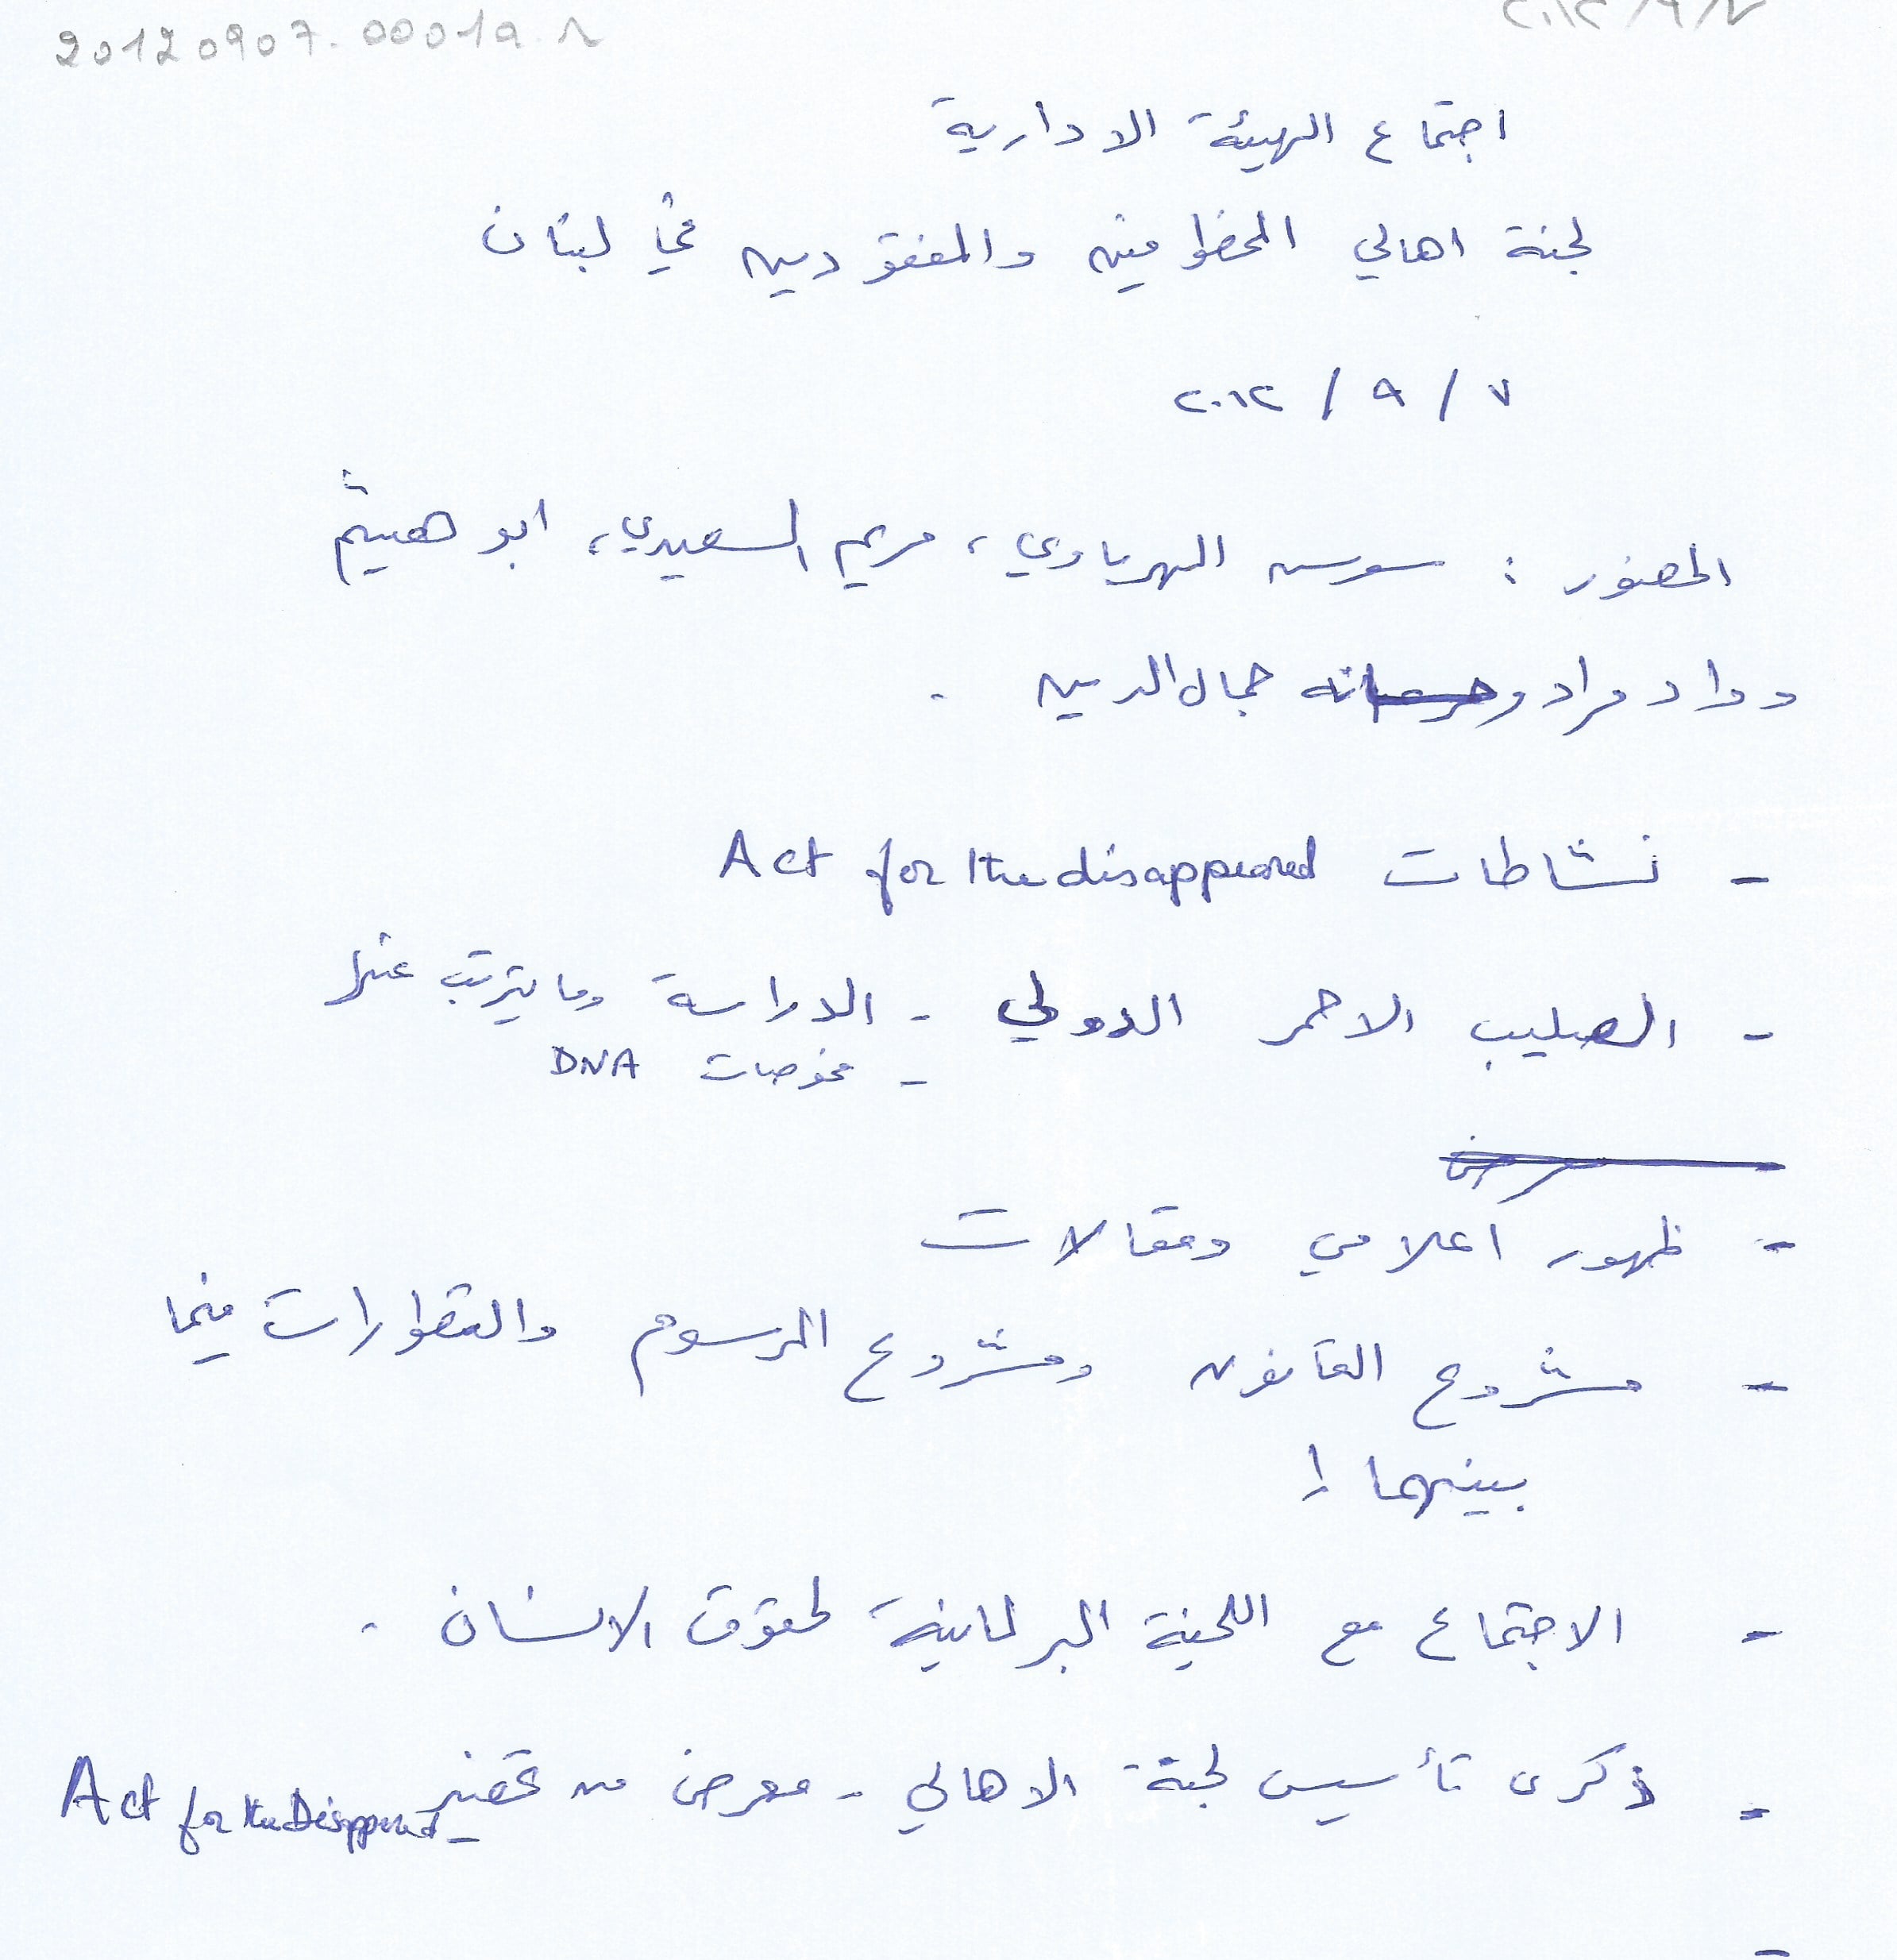 ٢٠١٢/٩/٧
20120907.00019.N
اجتماع الهيئة الادارية
لجنة اهالي المخطوفين والمفقودين في لبنان
٧ / ٩ / ٢٠١٢
الحضور : سوسن الهرباوي، مريم السعيدي، ابو هيثم
وداد مراد و جمال الدين .
- نشاطات Act for the disappeared
- الصليب الاحمر الدولي - الدراسة وما يترتب عنها
- فحوصات DNA
- ظهور اعلامي ومقالات
- مشروع القانون ومشروع المرسوم والتطورات فيما
بينهما
- الاجتماع مع اللجنة البرلمانية لحقوق الانسان .
- ذكرى تأسيس لجنة الاهالي - معرض من تحضير Act for the Disappeared
-